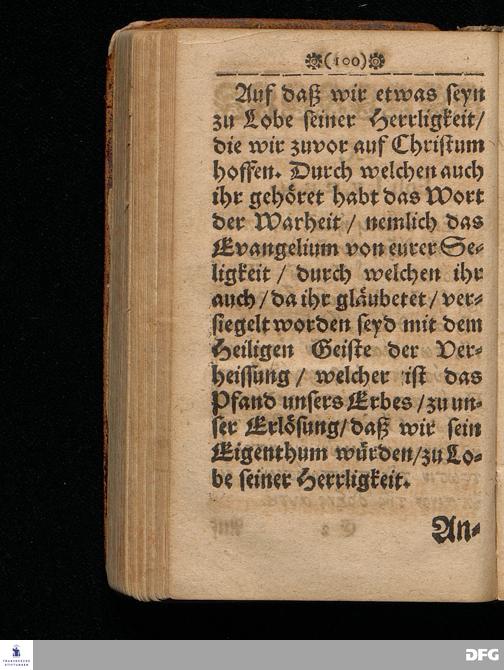 (100)
Auf daß wir etwas seyn
zu Lobe seiner Herrligkeit/
die wir zuvor auf Christum
hoffen. Durch welchen auch
ihr gehöret habt das Wort
der Warheit / nemlich das
Evangelium von eurer Se-
ligkeit / durch welchen ihr
auch / da ihr gläubetet / ver-
siegelt worden seyd mit dem
Heiligen Geiste der Ver-
heissung / welcher ist das
Pfand unsers Erbes / zu un-
ser Erlösung/ daß wir sein
Eigenthum würden/zu Lo-
be seiner Herrligkeit.
An-
FRANCKESCHE
STIFTUNGEN
DFG